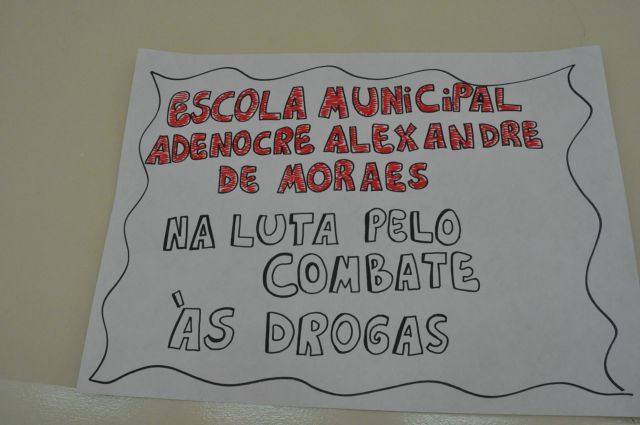 ESCOLA MUNICIPAL
ADENOCRE ALEXANDRE
DE MORAES
NA LUTA PELO
COMBATE
ÀS DROGAS